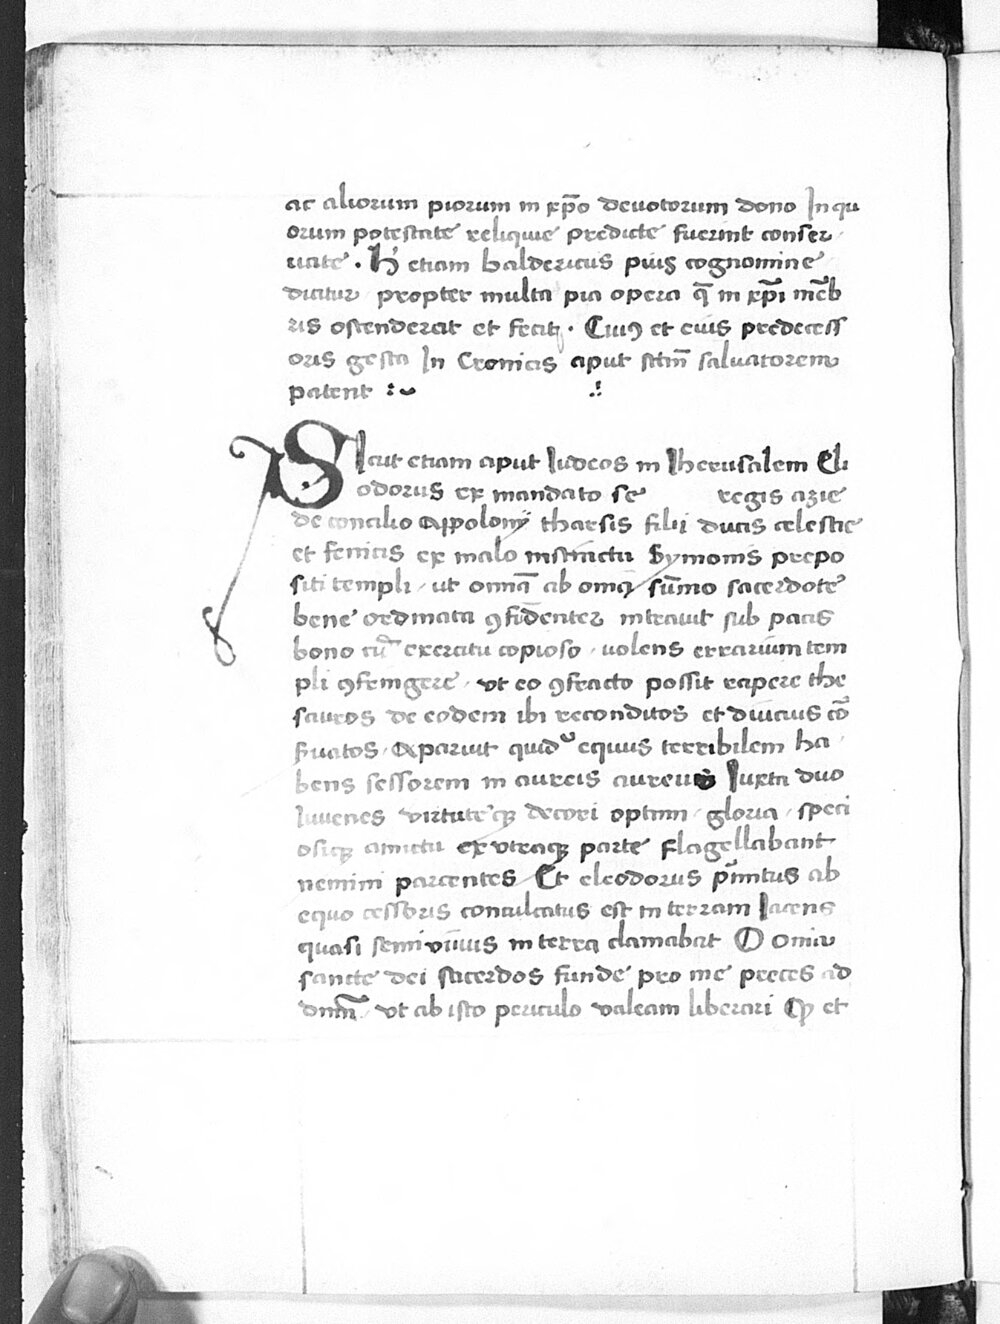 ac aliorum piorum in xp̄o deuotorum dono In qu
orum potestate reliquie predicte fuerint conser
uate . H' etiam baldericus pius cognomine
dicitur propter multa pia opera q̄ in xp̄i mēb
ris ostenderat et fecit . Cuiꝰ et eius predecess
oris gesta In Cronicis aput sc̄tm̄ saluatorem
patent :~ .:
SIcut etiam aput Iudeos in Iherusalem Eli
odorus ex mandato se regis azie
de concilio Appolonÿ tharsis filii ducis celestie
et fenicis ex malo instinctu Symonis prepo
siti templi / ut omīa ab omī / sūmo sacerdote
bene ordinata ꝯfidenter intrauit sub pacis
bono cū exercitu copioso / uolens errarium tem
pli ꝯfringere / vt eo ꝯfracto possit rapere the
sauros de eodem ibi reconditos et diuicius cō
seruatos / Apparuit quidē equus terribilem ha
bens sessorem in aureis aureum Iuxta duo
Iuuenes virtuteꝙ decori optimi / gloria / speci
osiꝙ amictu ex vtraꝙ parte flagellabant
nemini parcentes Et eleodorus p̄mitus ab
equo cessoris conculcatus est in terram Iacens
quasi semi viuus in terra clamabat O Onia
sancte dei sacerdos funde pro me preces ad
dnm̄ / vt ab isto periculo valeam liberari Ꝙ et